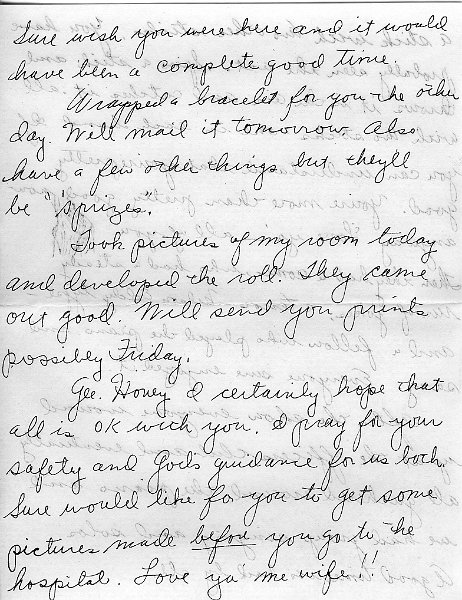 Sure wish you were here and it would
have been a complete good time.
Wrapped a bracelet for you the other
day. Will mail it tomorrow. Also
have a few other things but they'll
be "'sprizes".
Took pictures of my room today
and developed the roll. They came
out good. Will send you prints
possibley Friday.
Gee. Honey I certainly hope that
all is OK with you. I pray for your
safety and God's guidance for us both.
Sure would like for you to get some
pictures made before you go to the
hospital. Love ya' me wife!!